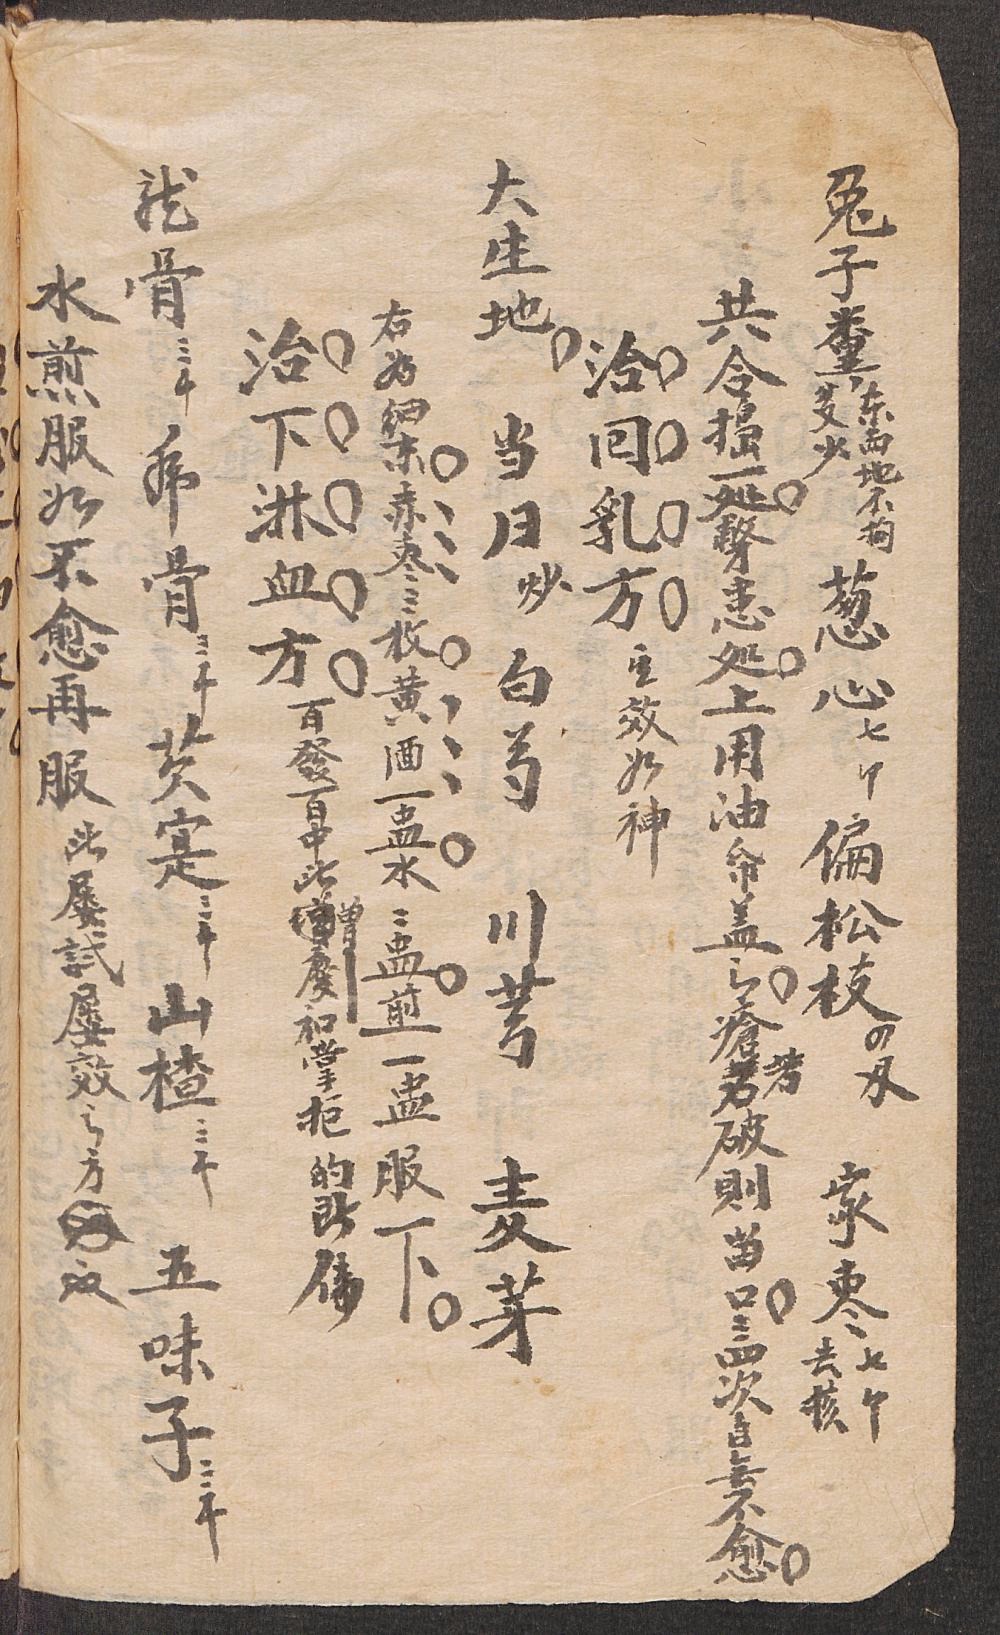 兔子糞 东西地不拘多少 葱心七个 偏松枝四双 家枣七个去核
共合搗一处擎患处上用油布盖之瘡若破則苗口三四次自無不愈
治回乳方 主效如神
大生地 当归炒 白芍 川芎 麦芽
右为細末赤枣三枚黄酒一盅水二盅煎一盅服下
治下淋血方 百發百中此增慶和堂拒的
龙骨三千 芡寔三千 山楂三千 五味子三千
水煎服如不愈再服 此屡試屡效之方